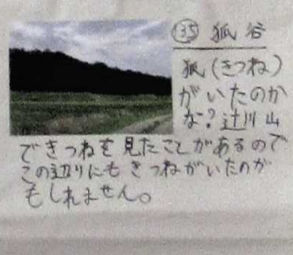 ㉟ 狐谷
狐(きつね)
がいたのか
な?辻川山
できつねを見たことがあるので
この辺りにもきつねがいたのか
もしれません。